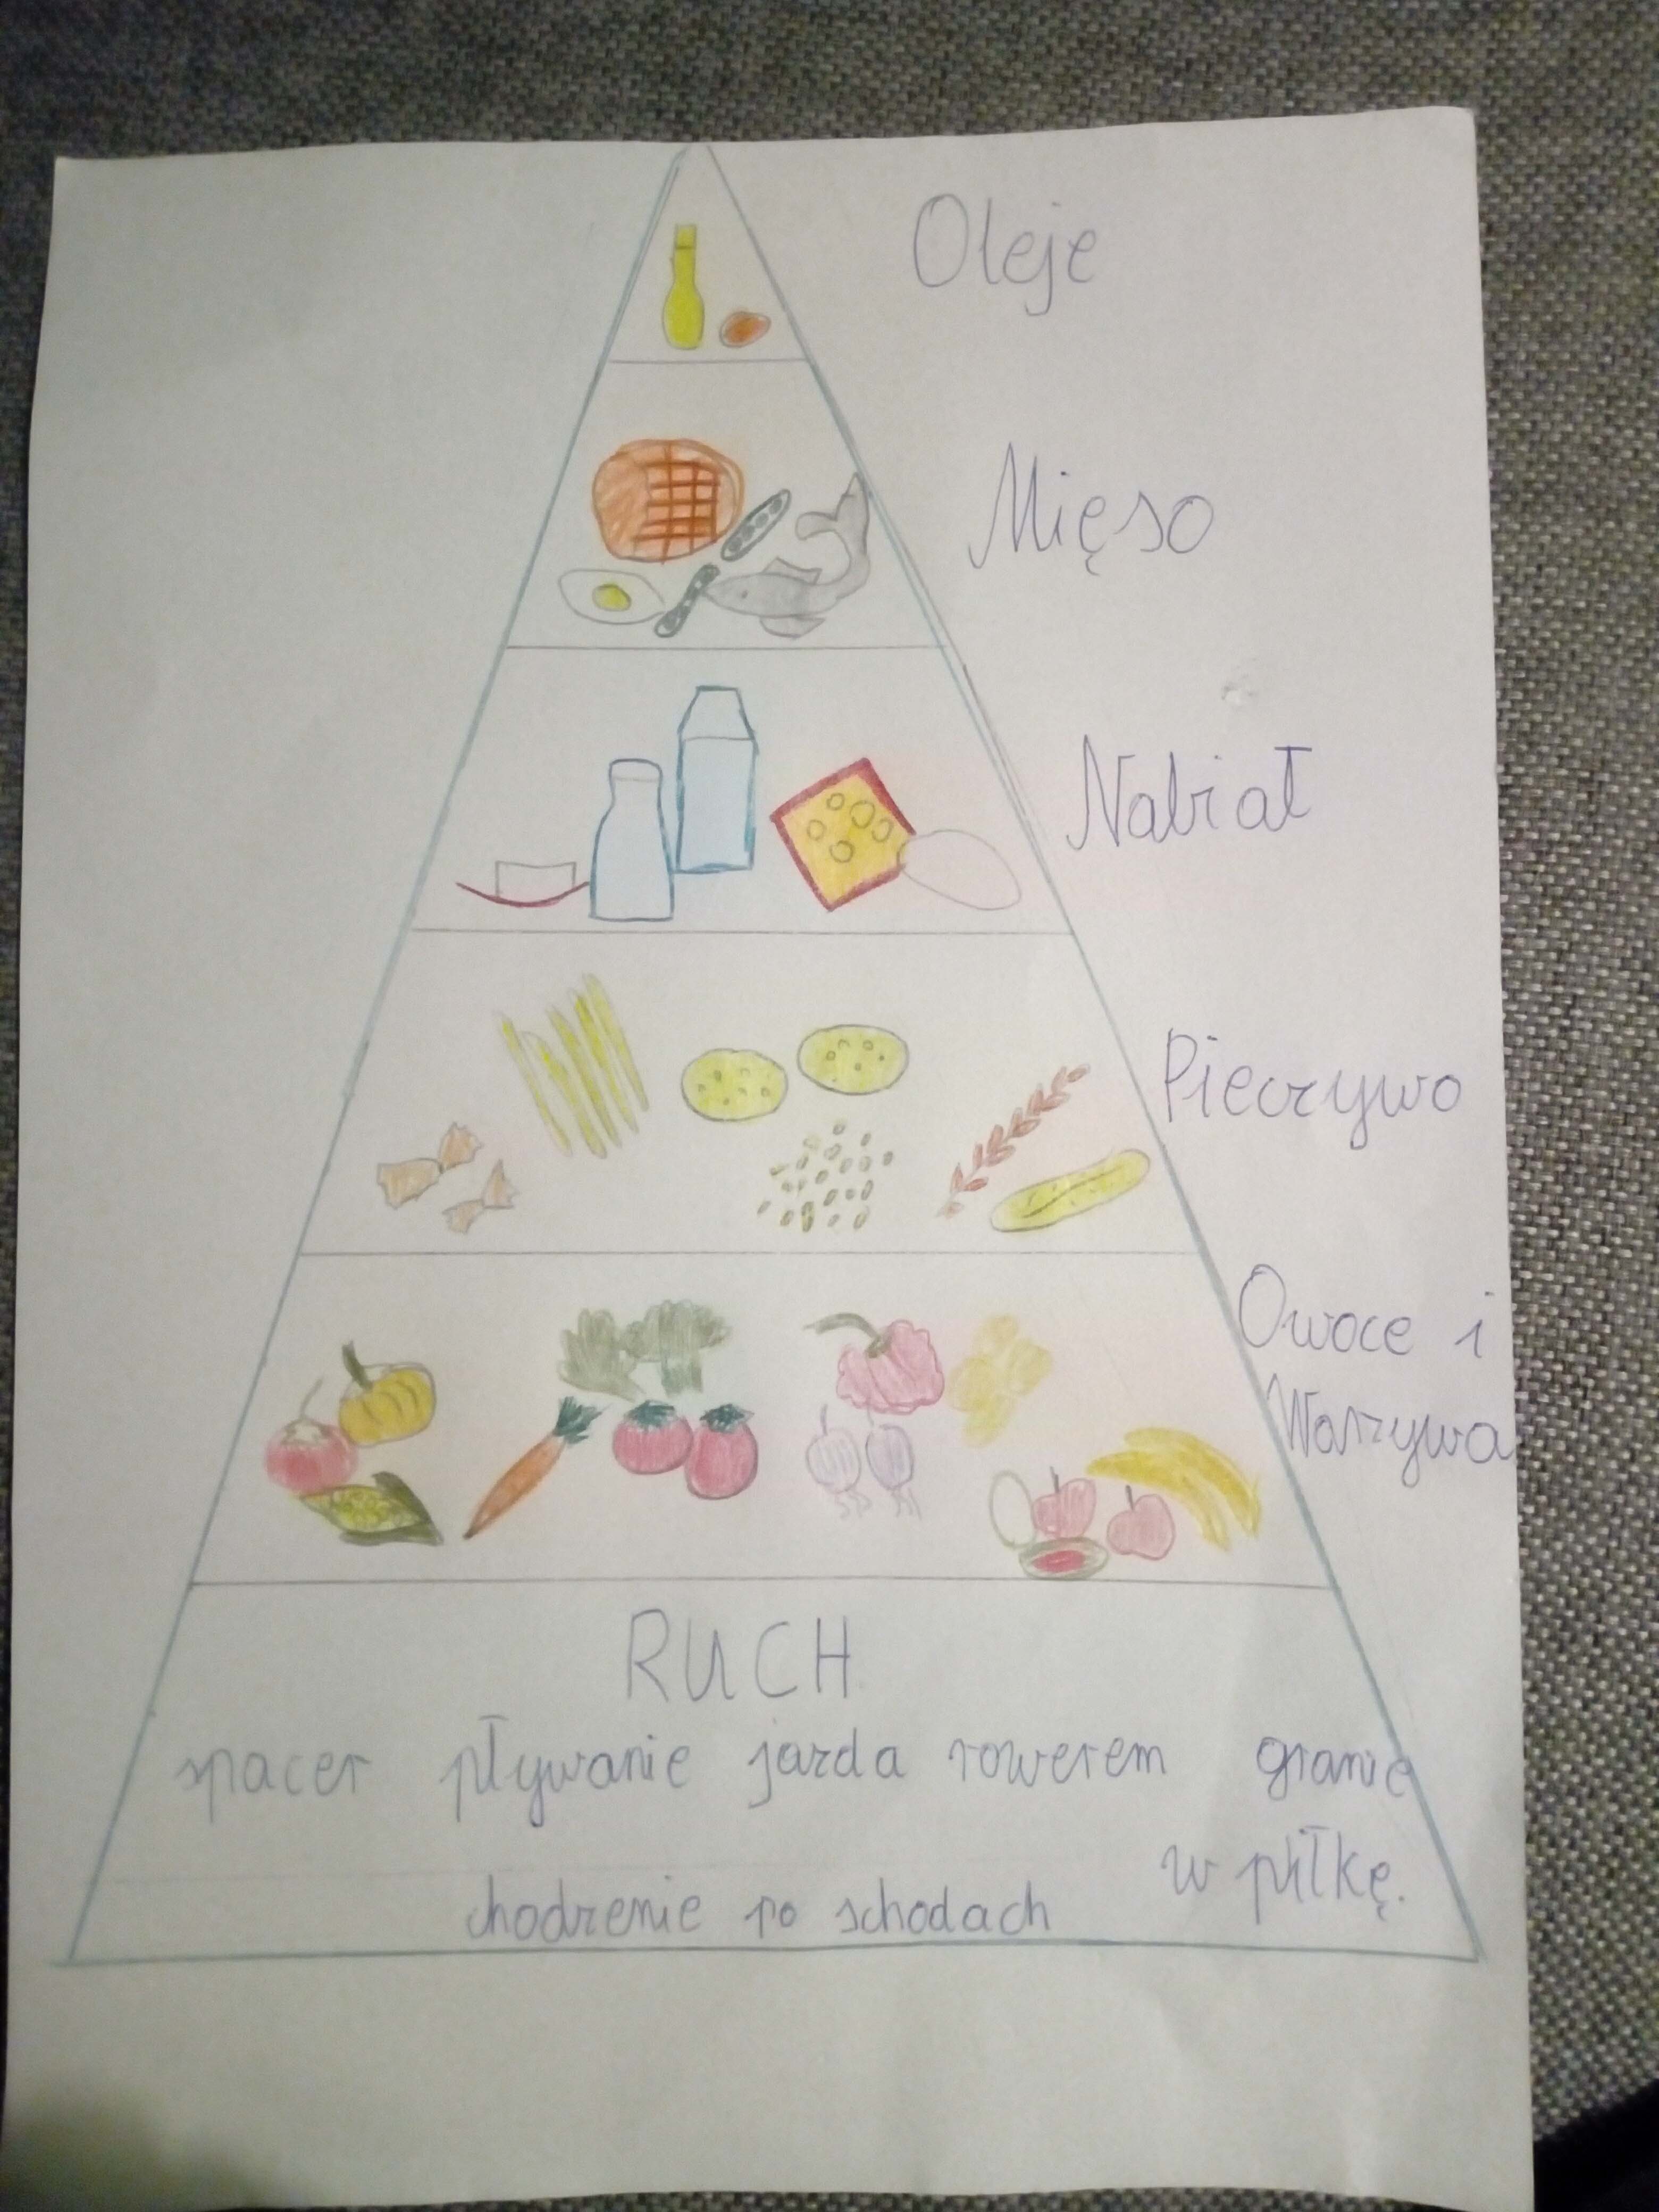 Oleje
Mięso
Nabiał
Pieczywo
Owoce i
Warzywa
RUCH
spacer pływanie jazda rowerem granie
w piłkę.
chodzenie po schodach